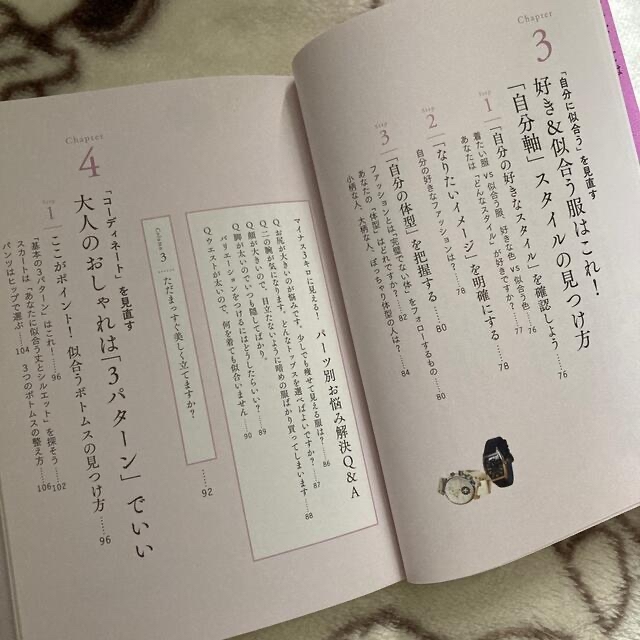 Chapter
3
「自分に似合う」を見直す
好き&似合う服はこれ!
「自分軸」スタイルの見つけ方
Step
1
「自分の好きなスタイル」を確認しよう……76
着たい服 vs 似合う服、好きな色 vs 似合う色……76
あなたは「どんなスタイル」が好きですか?……77
Step
2
「なりたいイメージ」を明確にする……78
自分の好きなファッションは?……78
Step
3
「自分の体型」を把握する……80
ファッションとは「完璧でない体」をフォローするもの……80
あなたの「体型」はどれですか?……82
小柄な人、大柄な人、ぽっちゃり体型の人は?……84
マイナス3キロに見える! パーツ別お悩み解決Q&A
Q.お尻が大きいのが悩みです。少しでも痩せて見える服は?……86
Q.二の腕が気になります。どんなトップスを選べばよいですか?……87
Q.顔が大きいので、目立たないように暗めの服ばかり買ってしまいます……88
Q.脚が太いのでいつも隠してばかり。
バリエーションをつけるにはどうしたらいい?……89
Q.ウエストが太いので、何を着ても似合いません……90
Column 3……ただまっすぐ美しく立てますか?……92
Chapter
4
「コーディネート」を見直す
大人のおしゃれは「3パターン」でいい
Step
1
ここがポイント! 似合うボトムスの見つけ方……96
「基本の3パターン」はこれ!……96
スカートは「あなたに似合う丈とシルエット」を探そう……102
パンツはヒップで選ぶ……104
3つのボトムスの整え方……106